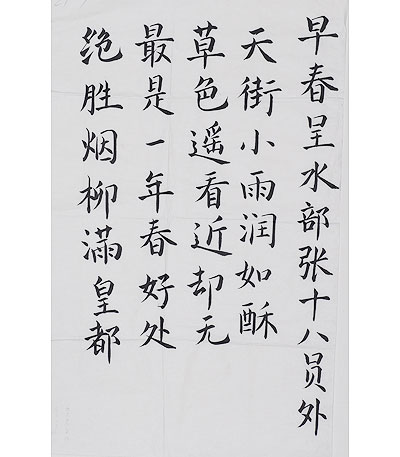 早春呈水部张十八员外
天街小雨润如酥
草色遥看近却无
最是一年春好处
绝胜烟柳满皇都